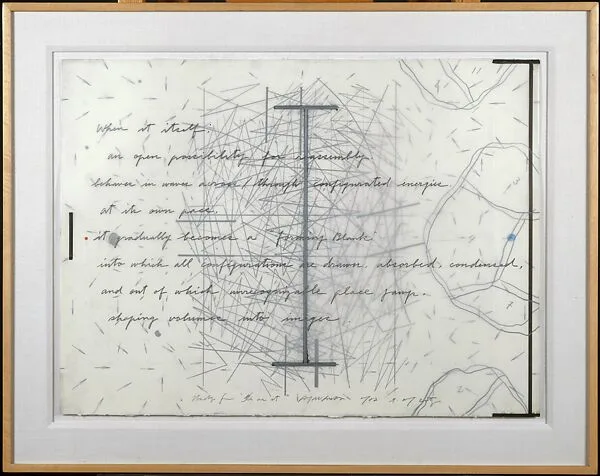 When it itself:
an open possibility for reassembly.
behaves in waves across / through configurated energies
at its own pace.
it gradually becomes a 'forming Blank'
into which all configurations are drawn, absorbed, condensed,
and out of which unrecognizable place jump.
shaping volumes into images
Study for